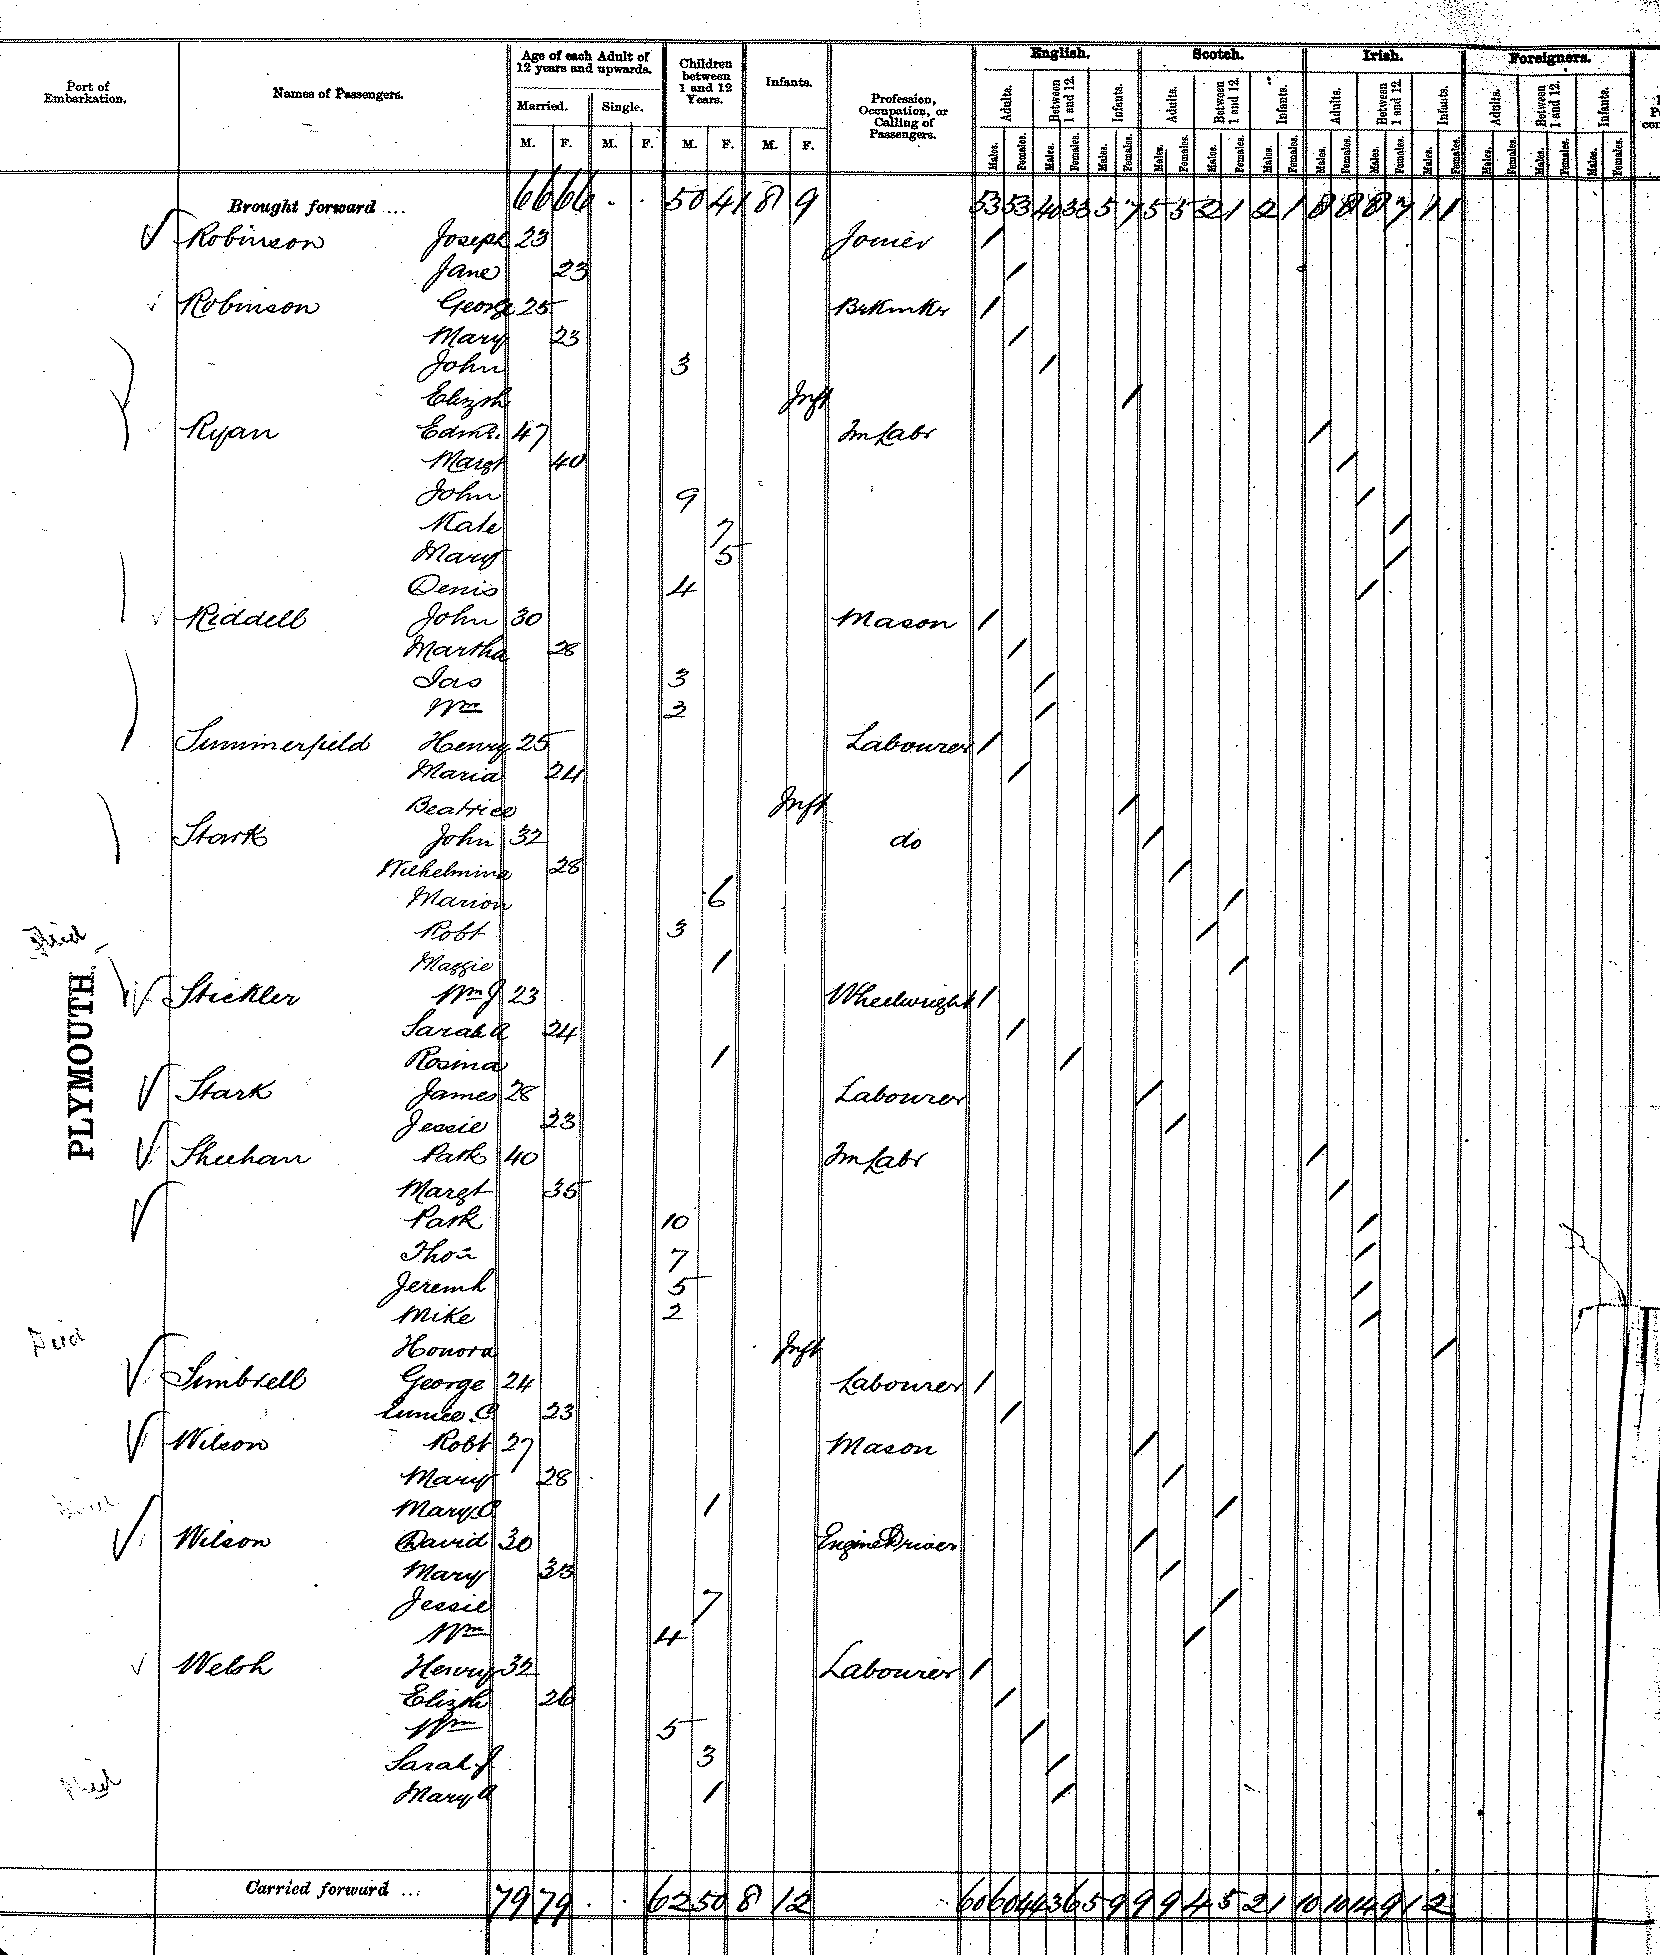 Port of Embarkation. Names of Passengers. Age of each Adult of 12 years and upwards. Children between 1 and 12 Years. Infants. Profession, Occupation, or Calling of Passengers. English. Scotch. Irish. Foreigners.
Married. Single. Adults. Between 1 and 12 Infants. Adults. Between 1 and 12 Infants. Adults. Between 1 and 12 Infants. Adults. Between 1 and 12 Infants.
M. F. M. F. M. F. M. F. Males. Females. Males. Females. Males. Females. Males. Females. Males. Females. Males. Females. Males. Females. Males. Females. Males. Females. Males. Females. Males. Females. Males. Females.
Brought forward ... 66 66 . . 50 41 8 9 53 53 40 33 5 7 5 5 2 1 2 1 8 8 8 7 1 1
Robinson Joseph 23 Joiner /
Jane 23 /
Robinson George 25 /
Mary 23 /
John 3 /
Elizth Inft /
Ryan Edmd. 47 Fm Labr /
Margt 40 /
John 9 /
Kate 7 /
Mary 5 /
Denis 4 /
Riddell John 30 Mason /
Martha 28 /
Jas 3 /
Wm 2 /
Summerfield Henry 25 Labourer /
Maria 24 /
Beatrice Inft /
Stark John 32 do /
Wilhelmina 28 /
Marion 6 /
Robt 3 /
Maggie 1 /
PLYMOUTH.
Stickler Wm J 23 Wheelwright /
Sarah A 24 /
Rosina 1 /
Stark James 28 Labourer /
Jessie 23 /
Sheehan Patk 40 Fm Labr /
Margt 35 /
Patk 10 /
Thos 7 /
Jeremh 5 /
Mike 2 /
Honora Inft /
Simbrell George 24 Labourer /
Eunice C 23 /
Wilson Robt 27 Mason /
Mary 28 /
Mary C 1 /
Wilson David 30 Engine Driver /
Mary 33 /
Jessie 7 /
Wm 4 /
Welsh Henry 32 Labourer /
Elizth 26 /
Wm 5 /
Sarah J 3 /
Mary A 1 /
Carried forward ... 79 79 . . 62 50 8 12 60 60 44 36 5 9 9 9 4 5 2 1 10 10 14 9 1 2